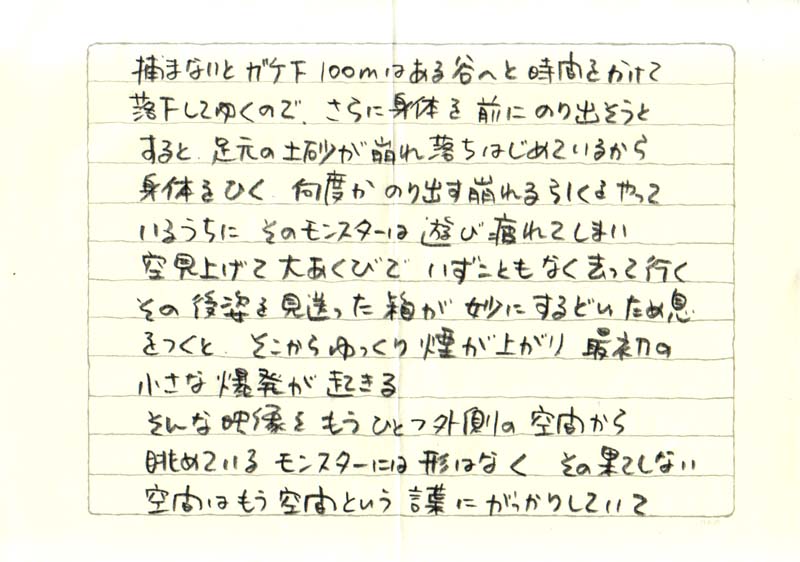 捕まないとガケ下100mはある谷へと時間をかけて
落下してゆくので、さらに身体を前にのり出そうと
すると、足元の土砂が崩れ落ちはじめているから
身体をひく、何度かのり出す崩れる引くをやって
いるうちに そのモンスターは遊び疲れてしまい
空見上げて大あくびで いずこともなく去って行く
その後姿を見送った箱が妙にするどいため息
をつくと、そこからゆっくり煙が上がり 最初の
小さな爆発が起きる
そんな映像をもうひとつ外側の空間から
眺めているモンスターには形はなく その果てしない
空間はもう空間という言葉にがっかりしていて